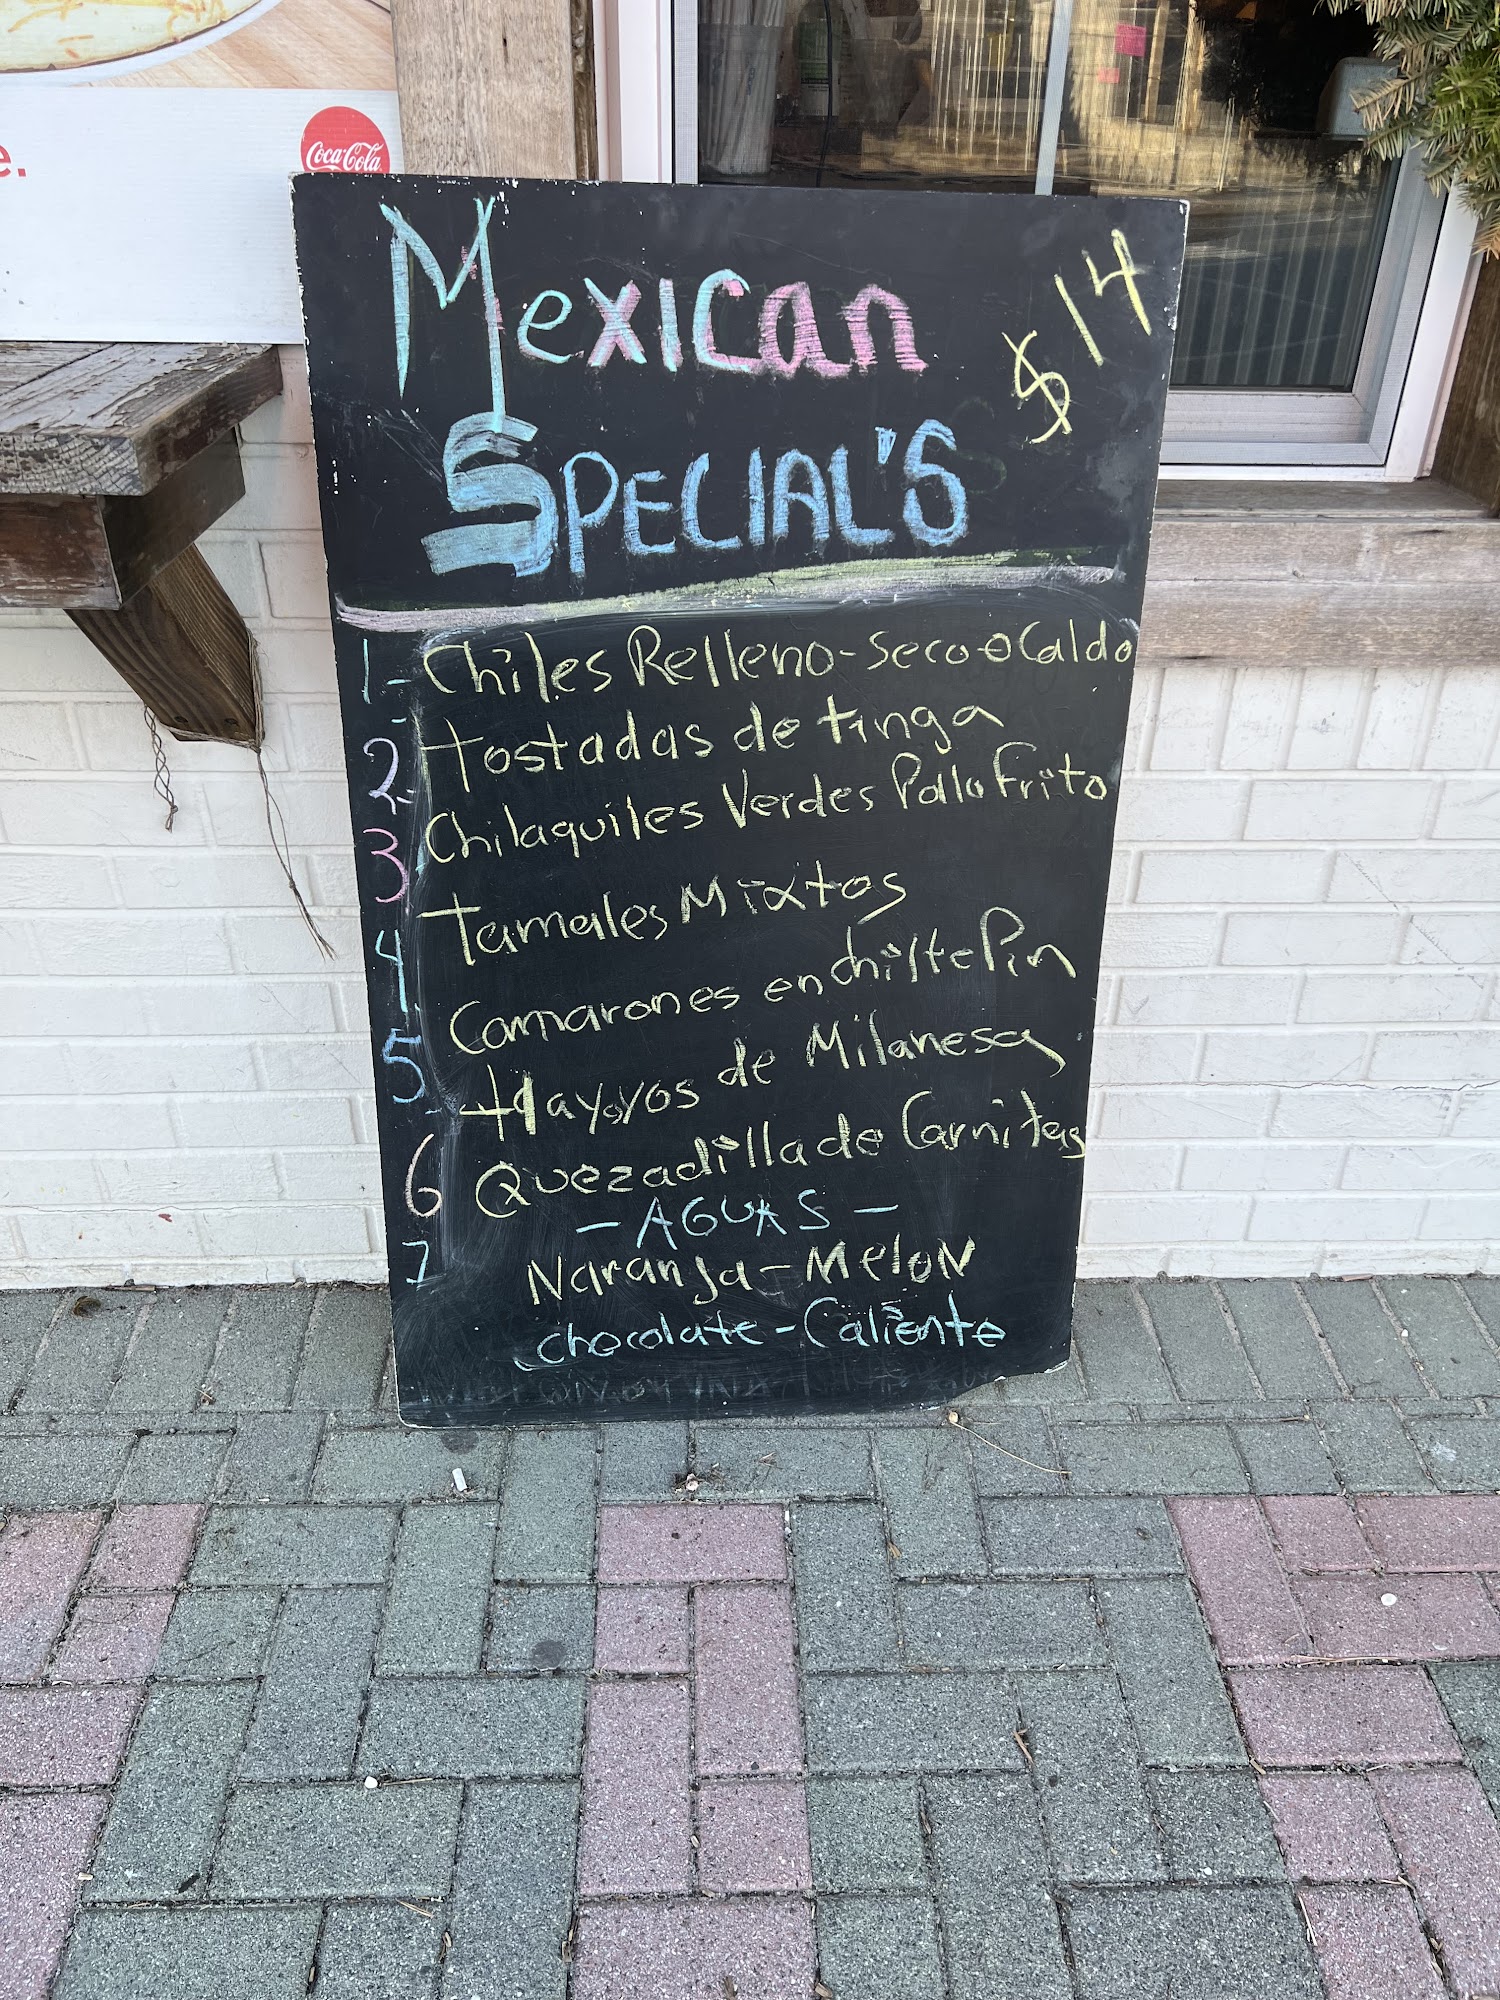 e.
Coca-Cola
Mexican
$14
SPECIAL'S
1- Chiles Relleno - Seco o Caldo
2- tostadas de tinga
3. Chilaquiles Verdes Pollo Frito
4. tamales Mixtos
5. Camarones en chiltepin
6 tlayoyos de Milanesa
7 Quezadilla de Carnitas
- AGUAS -
Naranja - MeloN
chocolate - Caliente